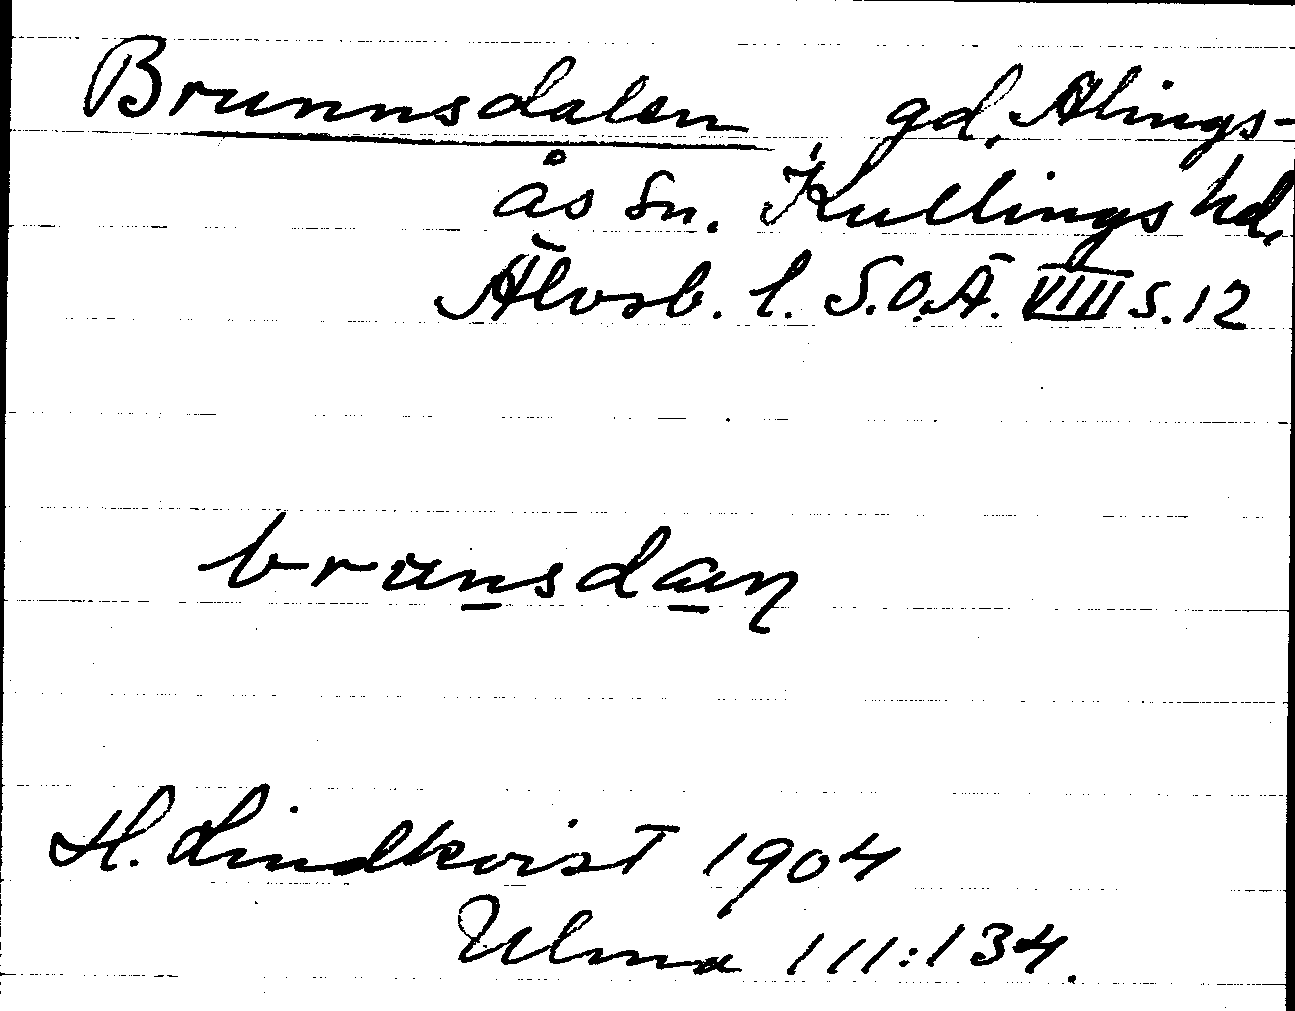 Brunnsdalen, gd, Alings-
ås sn. Kullings hd,
Älvsb. l. S.O.Ä. VIIII s. 12
brunsdaŋ
H. Lindkvist 1904
Ulma 111:134.